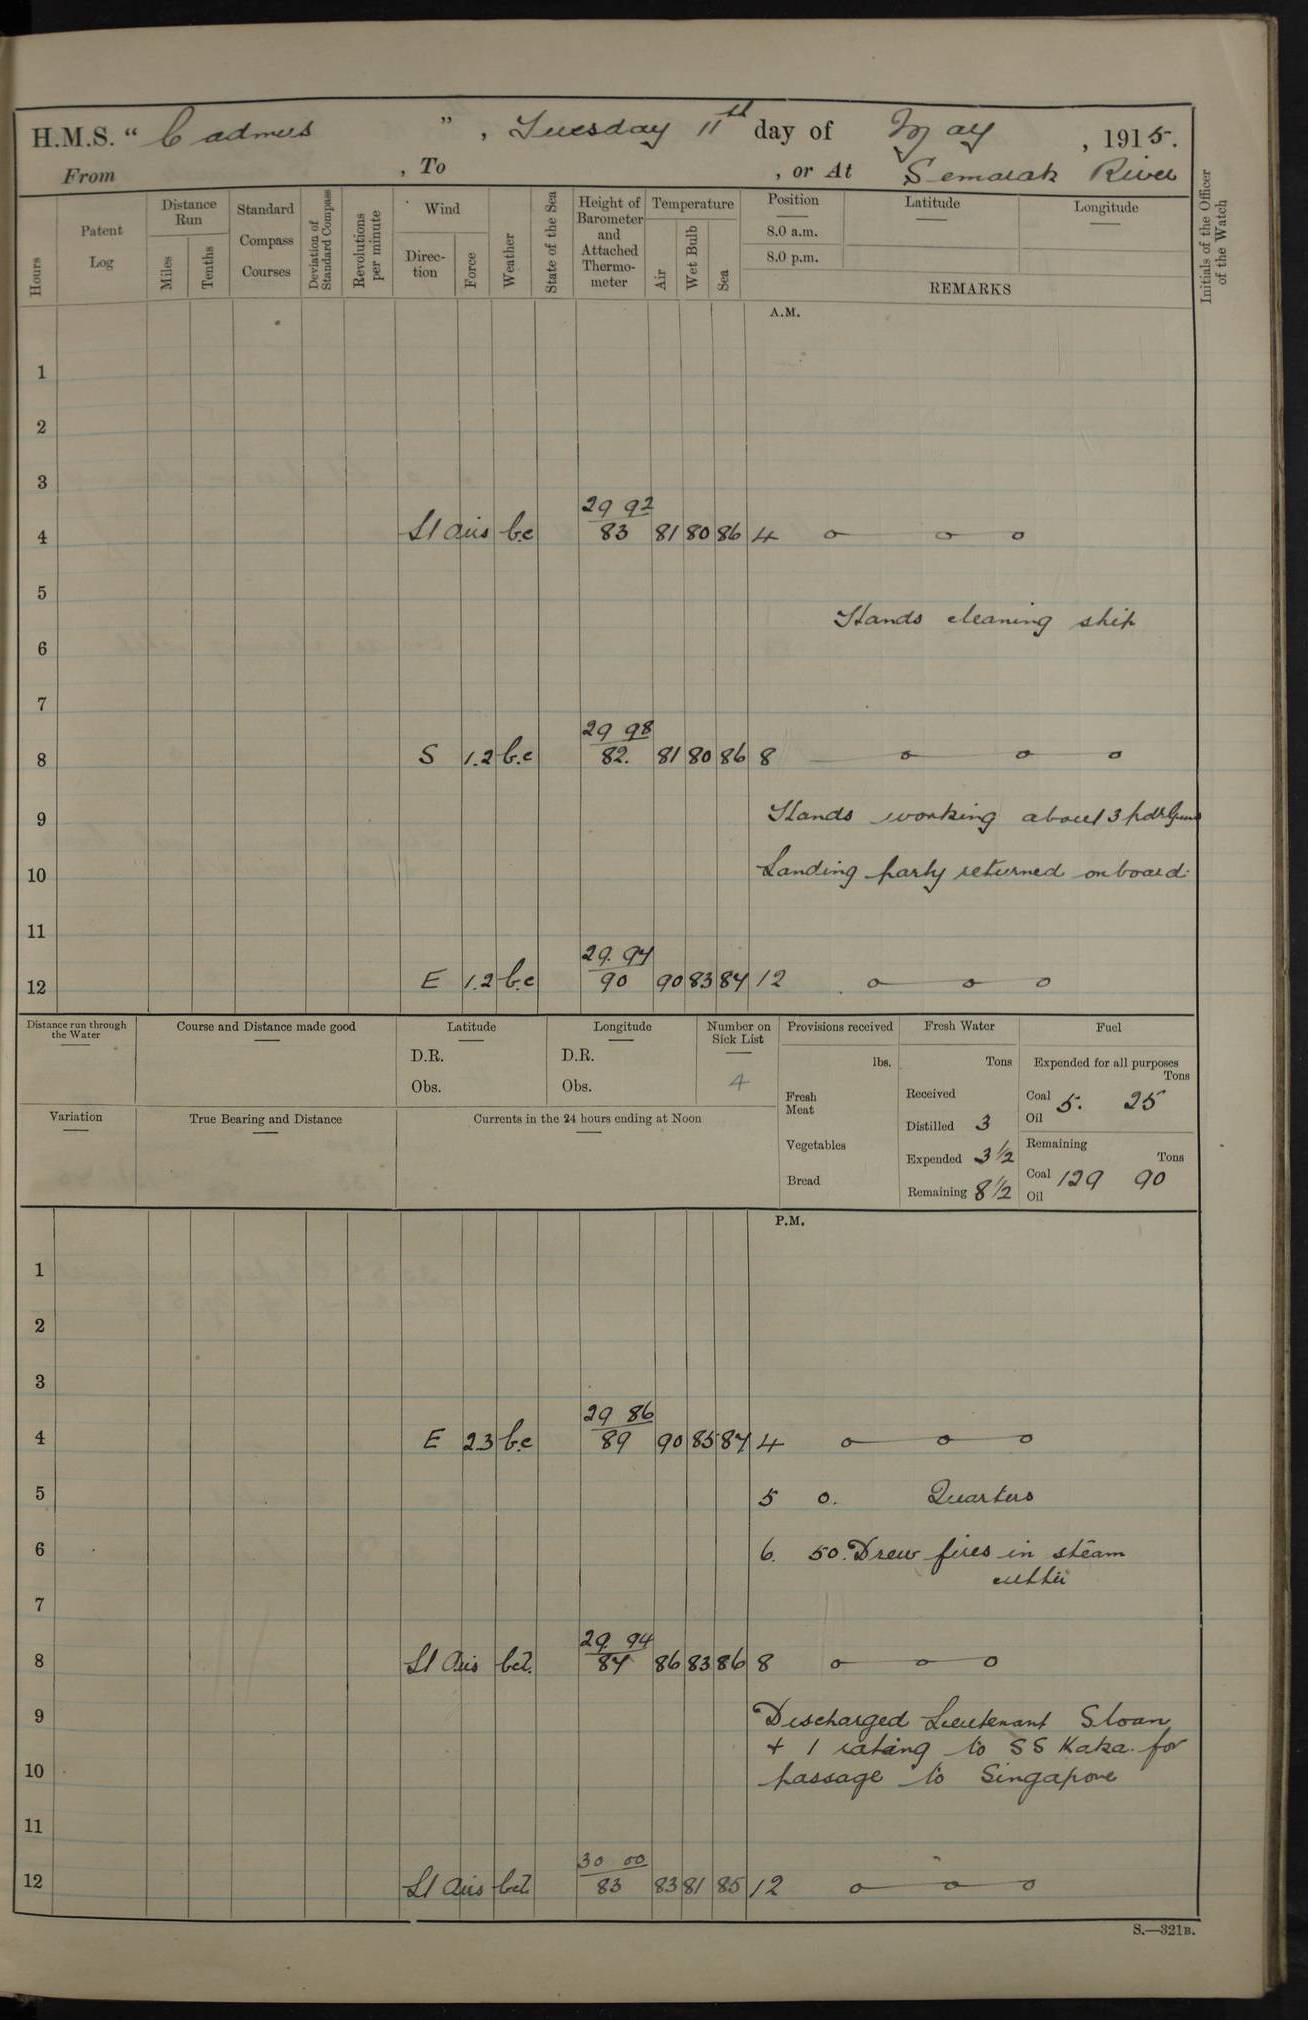 H.M.S. " Cadmus ", Tuesday 11th day of May, 1915.
From , To , or At Semarak River
Hours
Patent Log
Distance Run
Miles
Tenths
Standard Compass Courses
Deviation of Standard Compass
Revolutions per minute
Wind
Direction
Force
Weather
State of the Sea
Height of Barometer and Attached Thermometer
Temperature
Air
Wet Bulb
Sea
Position Latitude Longitude
8.0 a.m.
8.0 p.m.
REMARKS
Initials of the Officer of the Watch
A.M.
1
2
3
29 92
4 Lt airs b.c 83 81 80 86 4
5
Hands cleaning ship
6
7
29 98
8 S 1.2 b.c 82. 81 80 86 8
9 Hands working about 3 pdr Guns
10 Landing party returned onboard.
11
29. 94
12 E 1.2 b.c 90 90 83 87 12
Distance run through the Water
Course and Distance made good
Latitude
D.R.
Obs.
Longitude
D.R.
Obs.
Number on Sick List
4
Provisions received
lbs.
Fresh Meat
Vegetables
Bread
Fresh Water
Tons
Received
Distilled 3
Expended 3½
Remaining 8½
Fuel
Expended for all purposes
Tons
Coal 5. 25
Oil
Remaining
Tons
Coal 129 90
Oil
Variation
True Bearing and Distance
Currents in the 24 hours ending at Noon
P.M.
1
2
3
29 86
4 E 2.3 b.c 89 90 85 87 4
5 5 0. Quarters
6 6. 50. Drew fires in steam
cutter
7
29. 94
8 Lt Airs bcl. 87 86 83 86 8
9 Discharged Lieutenant Sloan
+ 1 rating to SS Kaka for
10 passage to Singapore
11
30 00
12 Lt Airs bcl. 83 83 81 85 12
S.—321B.